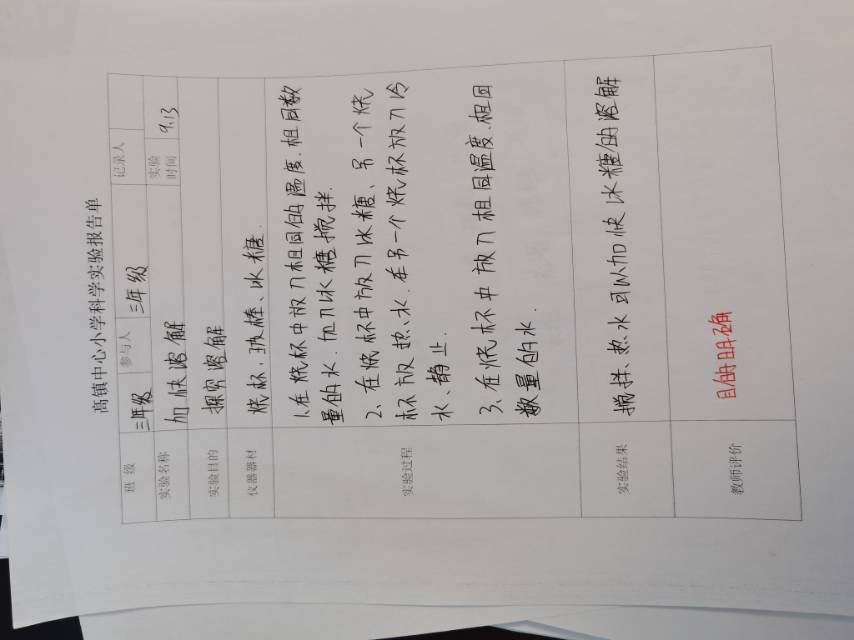 高镇中心小学科学实验报告单
班级 三年级 参与人 三年级 记录人
实验名称 加快溶解 实验时间 9.13
实验目的 探究溶解
仪器器材 烧杯、玻棒、冰糖
实验过程
1.在烧杯中放入相同的温度、相同数
量的水.加入冰糖搅拌.
2、在烧杯中放入冰糖、另一个烧
杯放热水.在另一个烧杯放入冷
水、静止.
3、在烧杯中放入相同温度、相同
数量的水.
实验结果 搅拌、热水可以加快冰糖的溶解
教师评价 目的明确